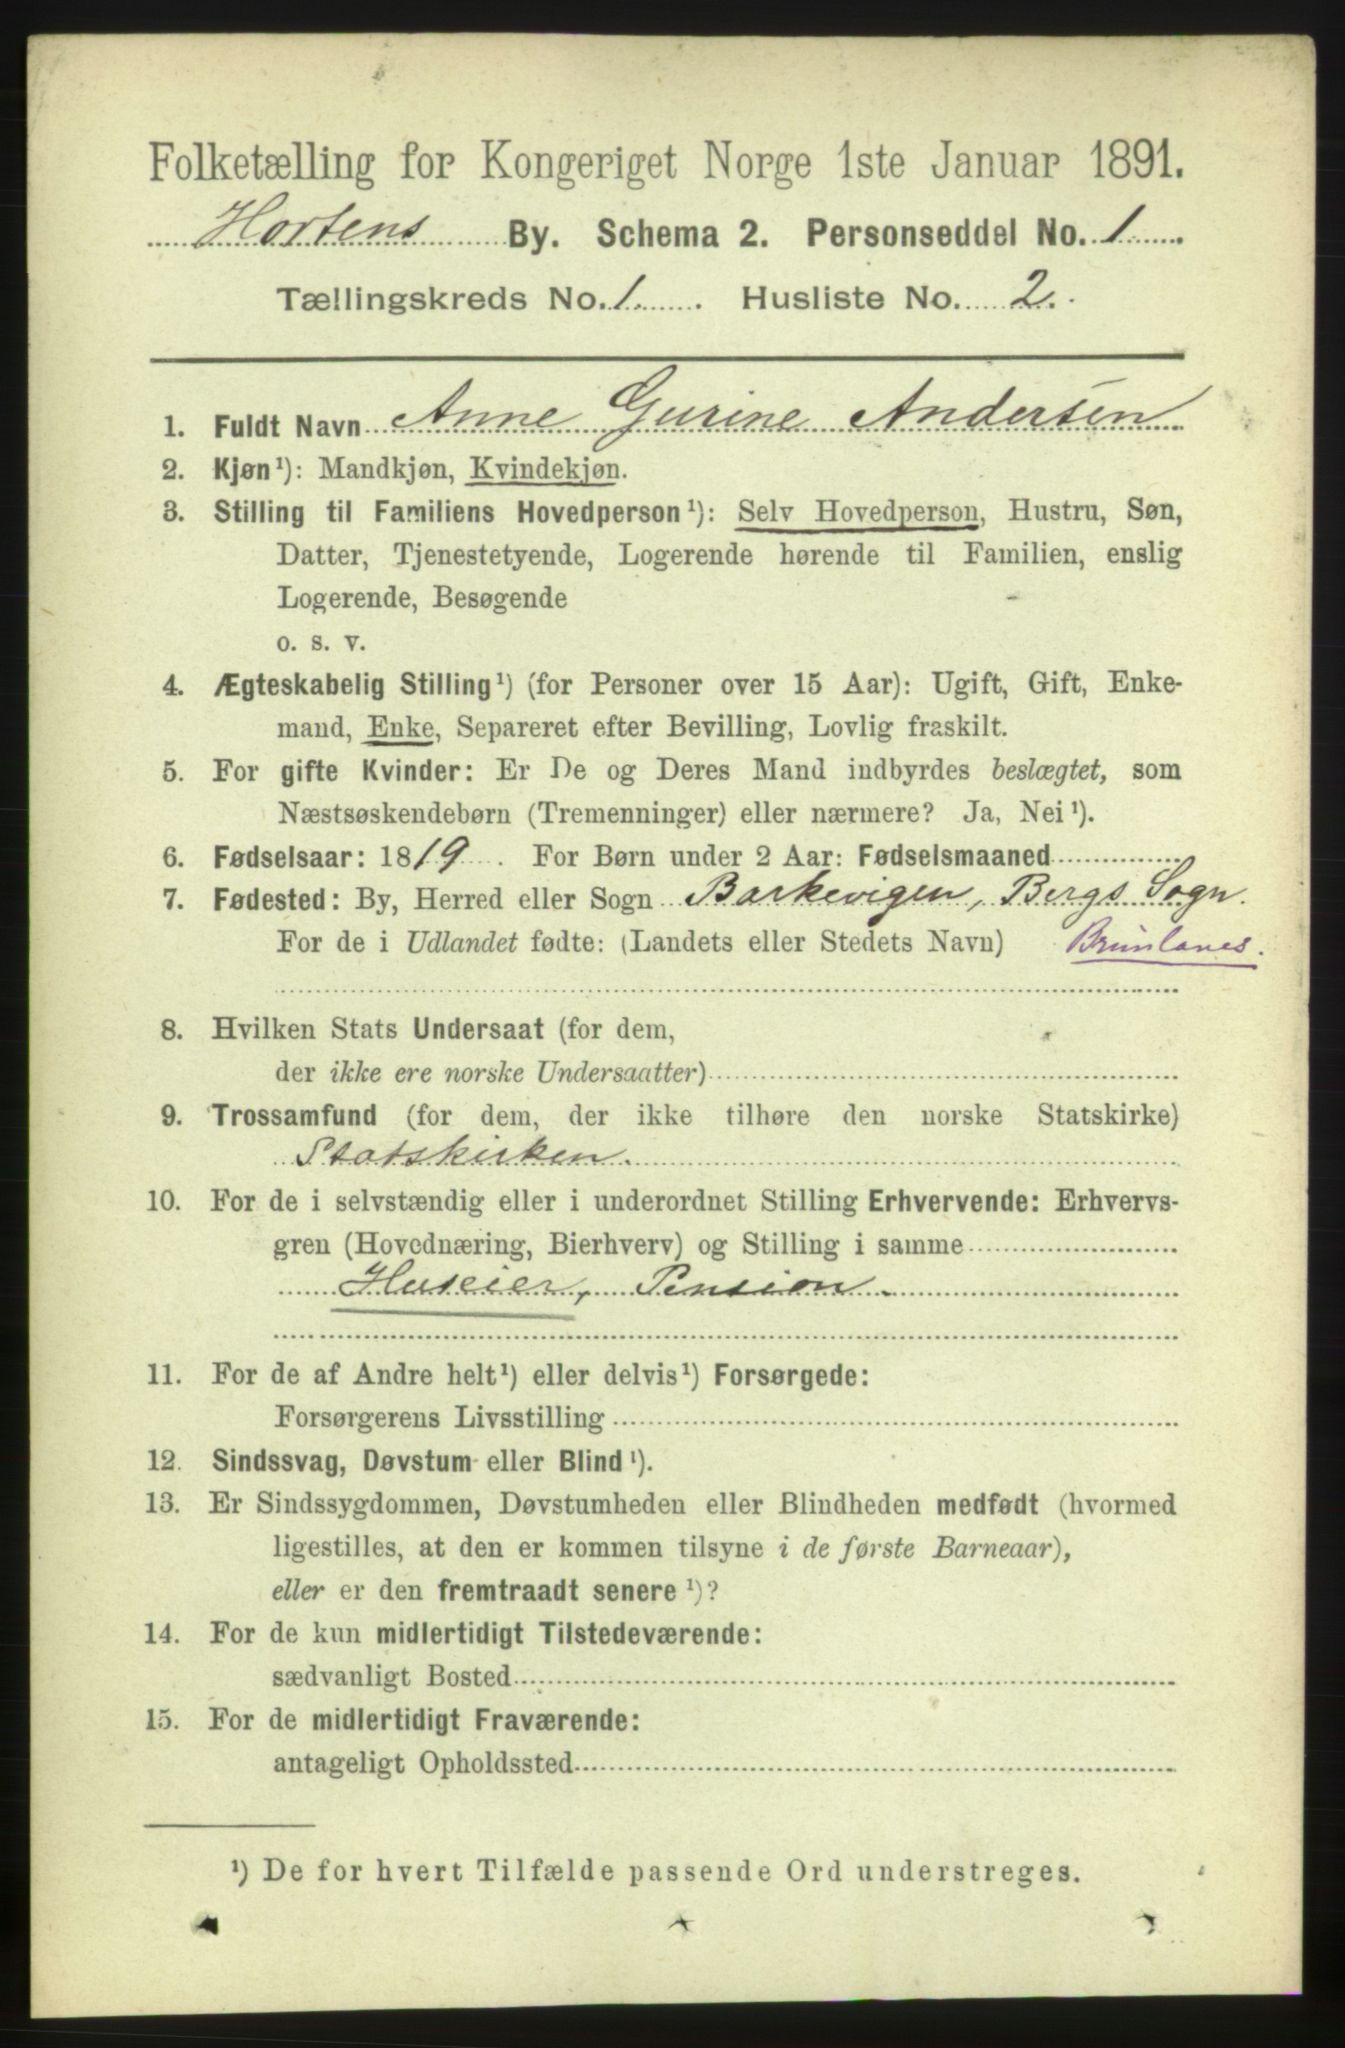 Folketælling for Kongeriget Norge 1ste Januar 1891.
Hortens By. Schema 2. Personseddel No. 1
Tællingskreds No. 1. Husliste No. 2.
1. Fuldt Navn Anne Gurine Andersen
2. Kjøn¹): Mandkjøn, Kvindekjøn.
3. Stilling til Familiens Hovedperson¹): Selv Hovedperson, Hustru, Søn,
Datter, Tjenestetyende, Logerende hørende til Familien, enslig
Logerende, Besøgende
o. s. v.
4. Ægteskabelig Stilling¹) (for Personer over 15 Aar): Ugift, Gift, Enke-
mand, Enke, Separeret efter Bevilling, Lovlig fraskilt.
5. For gifte Kvinder: Er De og Deres Mand indbyrdes beslægtet, som
Næstsøskendebørn (Tremenninger) eller nærmere? Ja, Nei¹).
6. Fødselsaar: 1819. For Børn under 2 Aar: Fødselsmaaned
7. Fødested: By, Herred eller Sogn Barkevigen, Bergs Sogn.
For de i Udlandet fødte: (Landets eller Stedets Navn) Brunlanes.
8. Hvilken Stats Undersaat (for dem,
der ikke ere norske Undersaatter)
9. Trossamfund (for dem, der ikke tilhøre den norske Statskirke)
Statskirken.
10. For de i selvstændig eller i underordnet Stilling Erhvervende: Erhvervs-
gren (Hovednæring, Bierhverv) og Stilling i samme
Huseier, Pension.
11. For de af Andre helt¹) eller delvis¹) Forsørgede:
Forsørgerens Livsstilling
12. Sindssvag, Døvstum eller Blind¹).
13. Er Sindssygdommen, Døvstumheden eller Blindheden medfødt (hvormed
ligestilles, at den er kommen tilsyne i de første Barneaar),
eller er den fremtraadt senere¹)?
14. For de kun midlertidigt Tilstedeværende:
sædvanligt Bosted
15. For de midlertidigt Fraværende:
antageligt Opholdssted
¹) De for hvert Tilfælde passende Ord understreges.